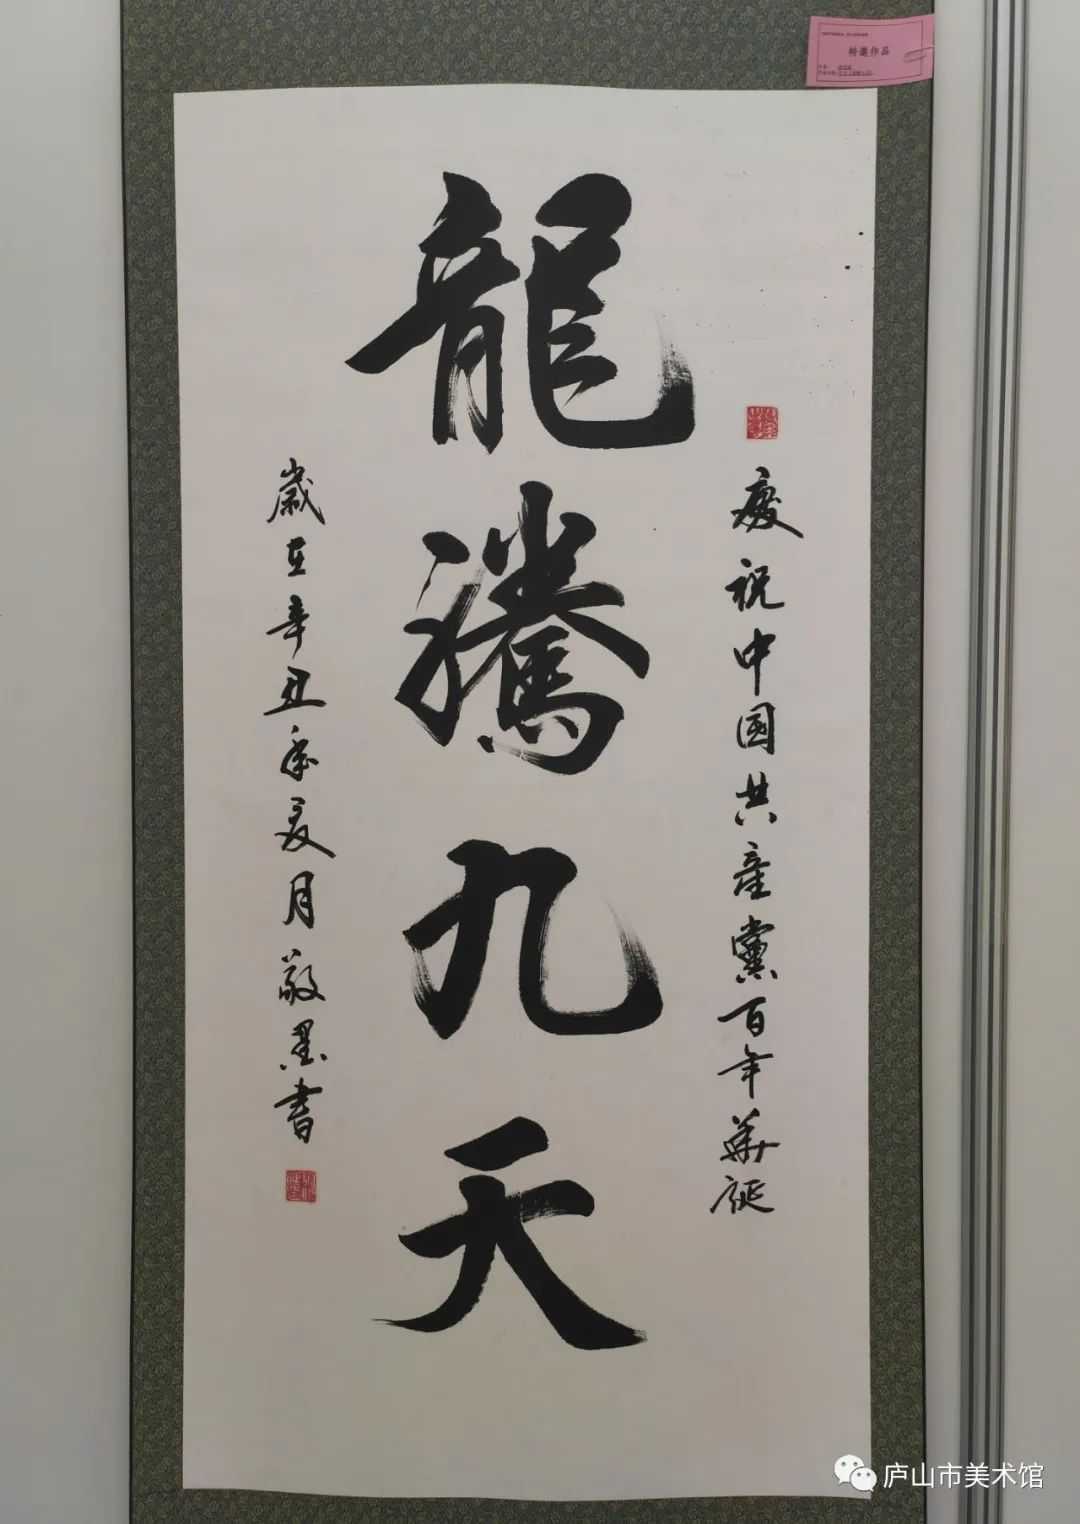 特邀作品
慶祝中国共產黨百年華誕
龍騰九天
歲在辛丑年夏月敬墨書
庐山市美术馆